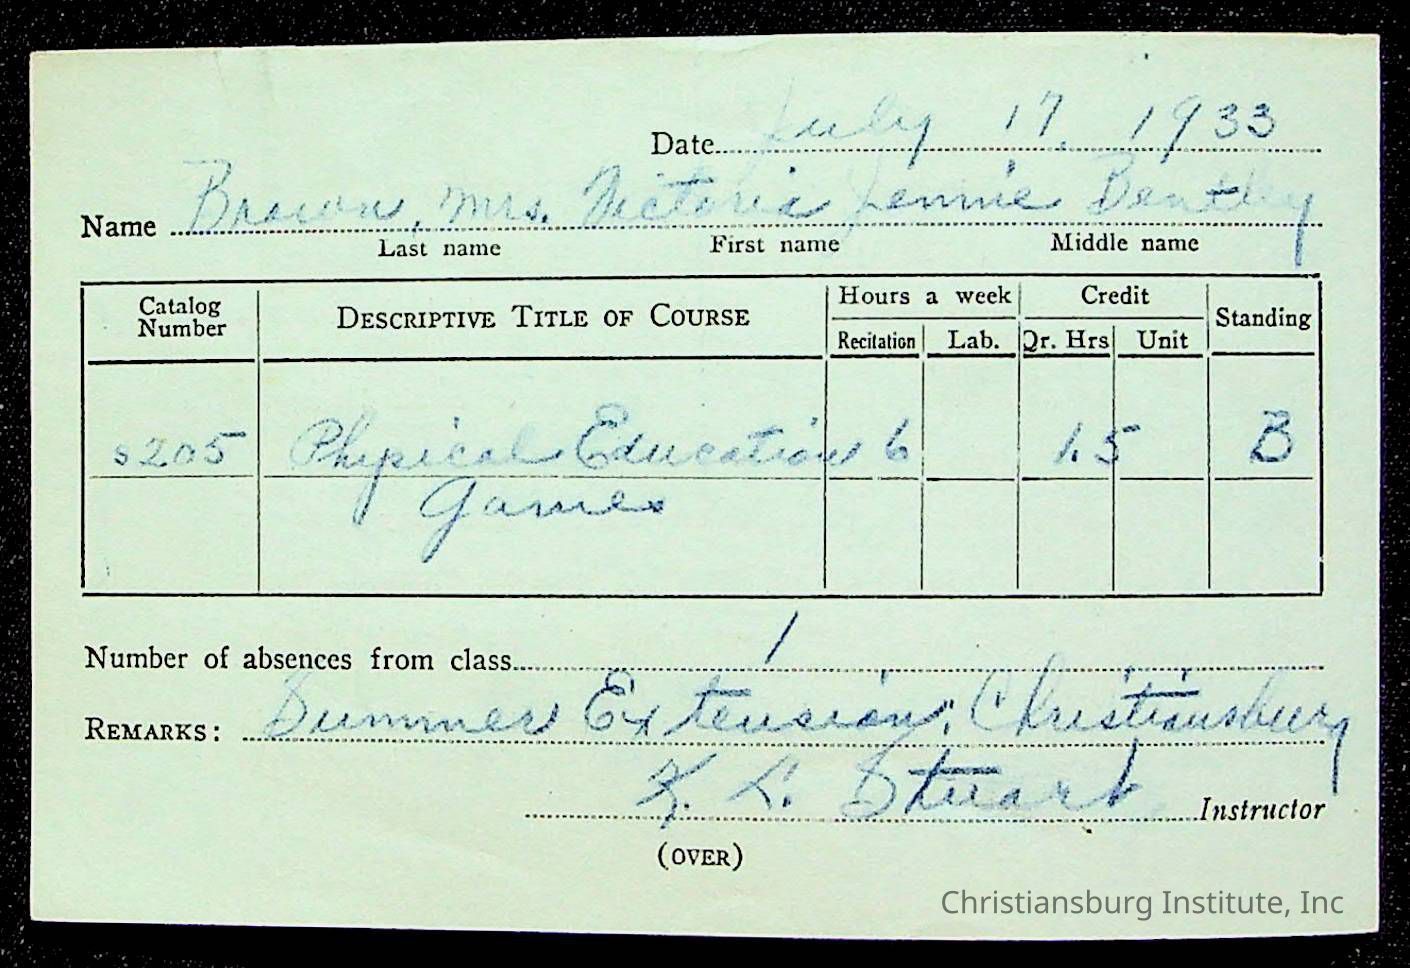 Date July 17, 1933
Name Brown, Mrs. Victoria Jennie Bentley
Last name First name Middle name
Catalog Number DESCRIPTIVE TITLE OF COURSE Hours a week Credit Standing
Recitation Lab. Qr. Hrs Unit
s205 Physical Education 6 1.5 B
Games
Number of absences from class 1
REMARKS: Summer Extension, Christiansburg
K. L. Stuart Instructor
(OVER)
Christiansburg Institute, Inc